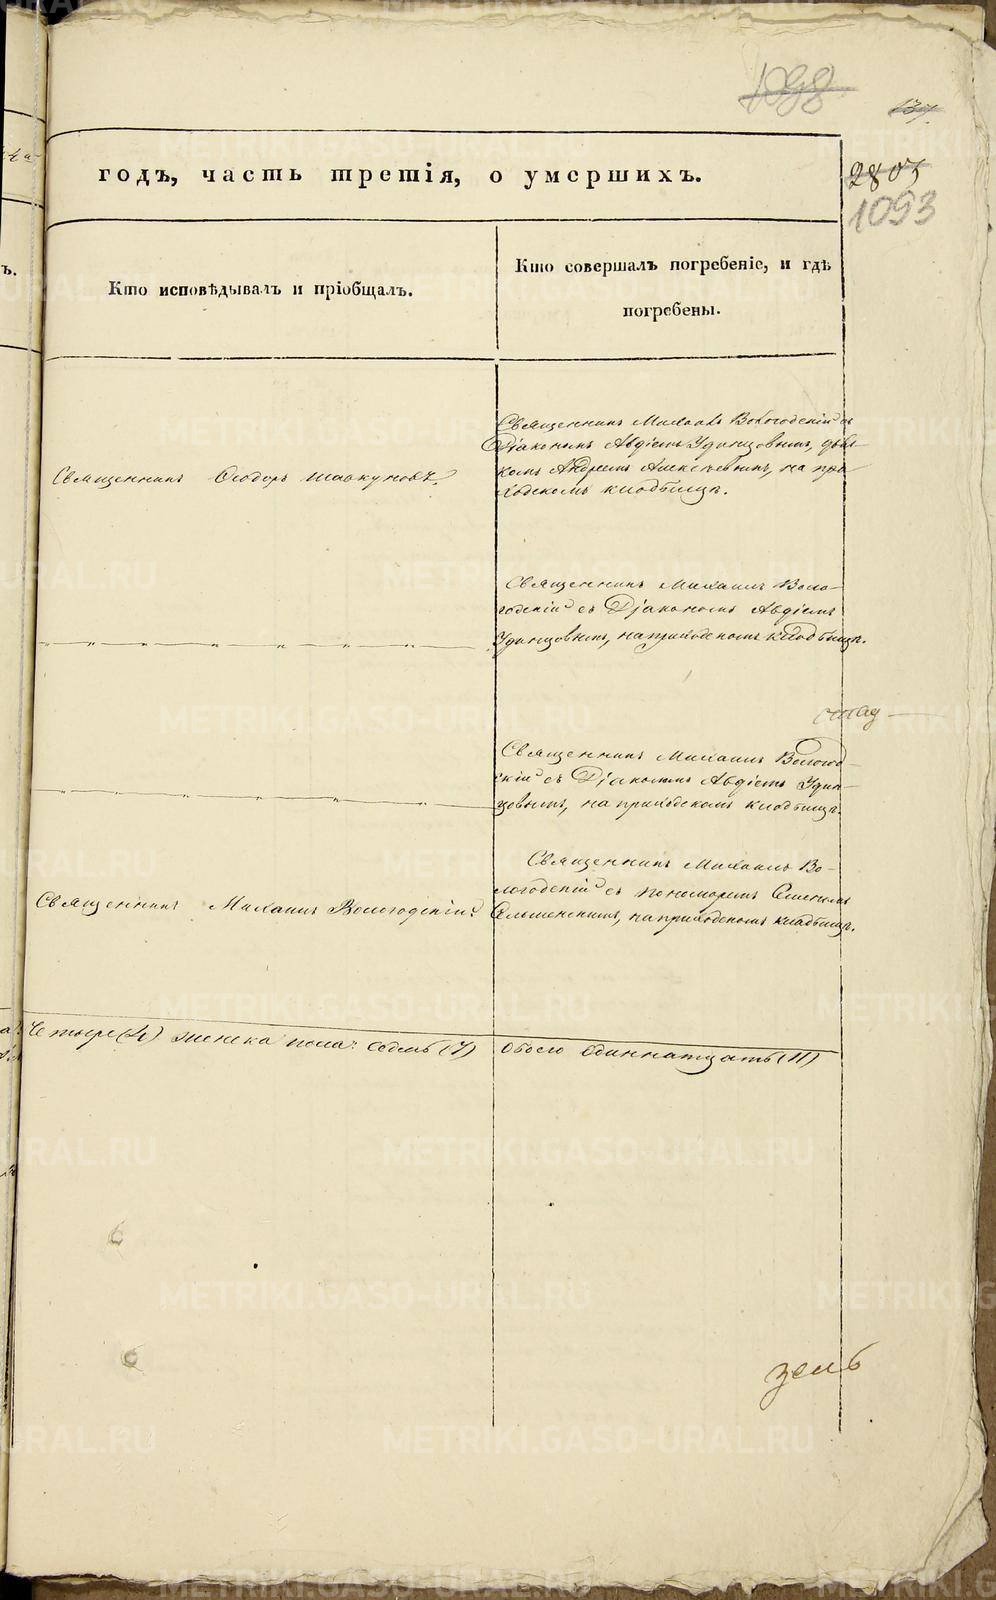 1098
137.
2803
1093
годъ, часть третія, о умершихъ.
Кто исповѣдывалъ и пріобщалъ.
Кто совершалъ погребеніе, и гдѣ
погребены.
Священникъ Ѳеодоръ Шавкуновъ.
Священникъ Михаилъ Вологодскій съ
Діакономъ Авдіемъ Удинцовымъ, дьяч-
комъ Андреемъ Алексѣевымъ, на при-
ходскомъ кладбищѣ.
Священникъ Михаилъ Воло-
годскій съ Діакономъ Авдіемъ
Удинцовымъ, на приходскомъ кладбищѣ.
Священникъ Михаилъ Вологод-
скій съ Діакономъ Авдіемъ Удин-
цовымъ, на приходскомъ кладбищѣ.
Священникъ Михаилъ Вологодскій.
Священникъ Михаилъ Во-
логодскій съ пономаремъ Семеномъ
на приходскомъ кладбищѣ.
Четыре (4) женска пола: Седмь (7) Обоего Одиннатцать (11)
зель
METRIKI.GASO-URAL.RU